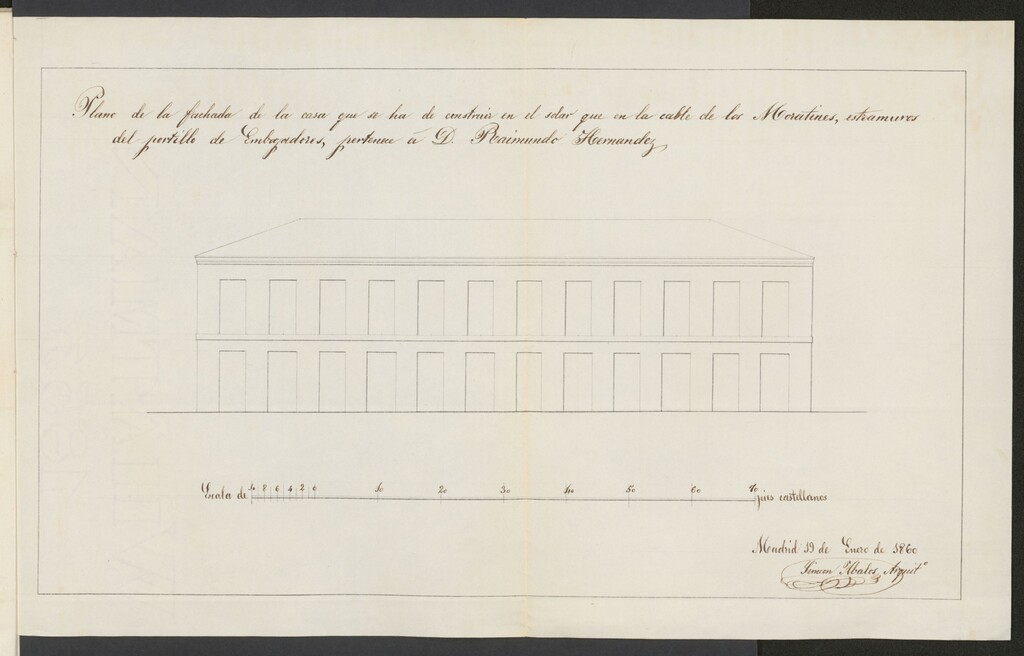 Plano de la fachada de la casa que se ha de construir en el solar que en la calle de los Moratines, estramuros
del portillo de Embajadores, pertenece á D. Raimundo Hernandez
Escala de 10 8 6 4 2 0 10 20 30 40 50 60 70 pies castellanos
Madrid 19 de Enero de 1860
Simeon Abalos Arquitº